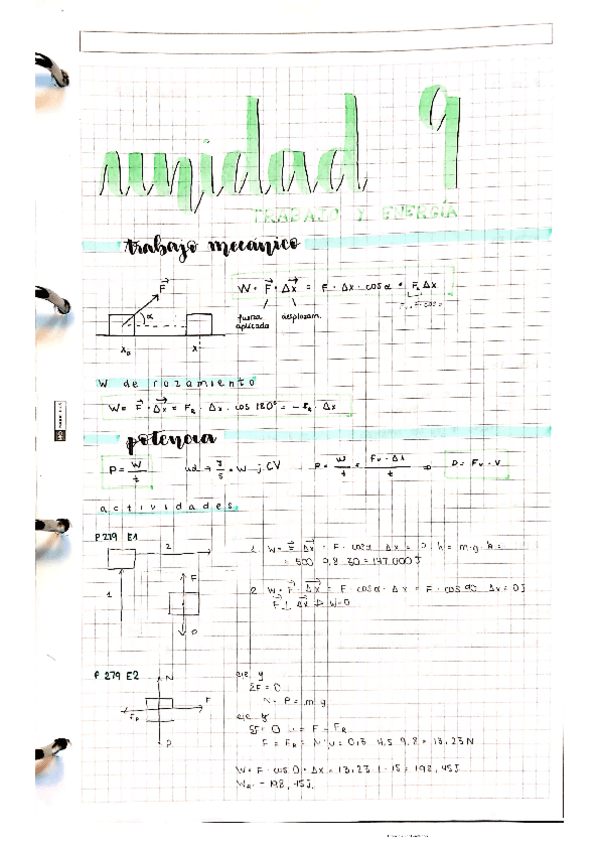 unidad 9
TRABAJO Y ENERGÍA
trabajo mecánico
W = F · Δx = F · Δx · cos α = Fx Δx
F
α
fuerza aplicada
desplazam.
x₀ x
W de rozamiento
W = F · Δx = FR · Δx · cos 180° = − FR · Δx
potencia
P = W/t ud → J/s = W j. CV P = W/t = Fv · Δx/t ⇒ P = Fv · v
actividades
P 279 E1
2
1
F
1. W = F · Δx = F · cos α Δx = · h = m·g·h =
= 500 9,8 30 = 147 000 J
2. W = F · Δx = F · cos α · Δx = F · cos 90 Δx = 0 J
F ⊥ Δx ⇒ W = 0
P 279 E2
N
F
P
eje y
ΣF = 0
N = P = m g
eje
0 = F − FR
F = FR = N · μ = 0,3 4,5 9,8 = 13,23 N
W = F · cos 0 · Δx = 13,23 · 1 · 15 = 198,45 J
WR = − 198,45 J.